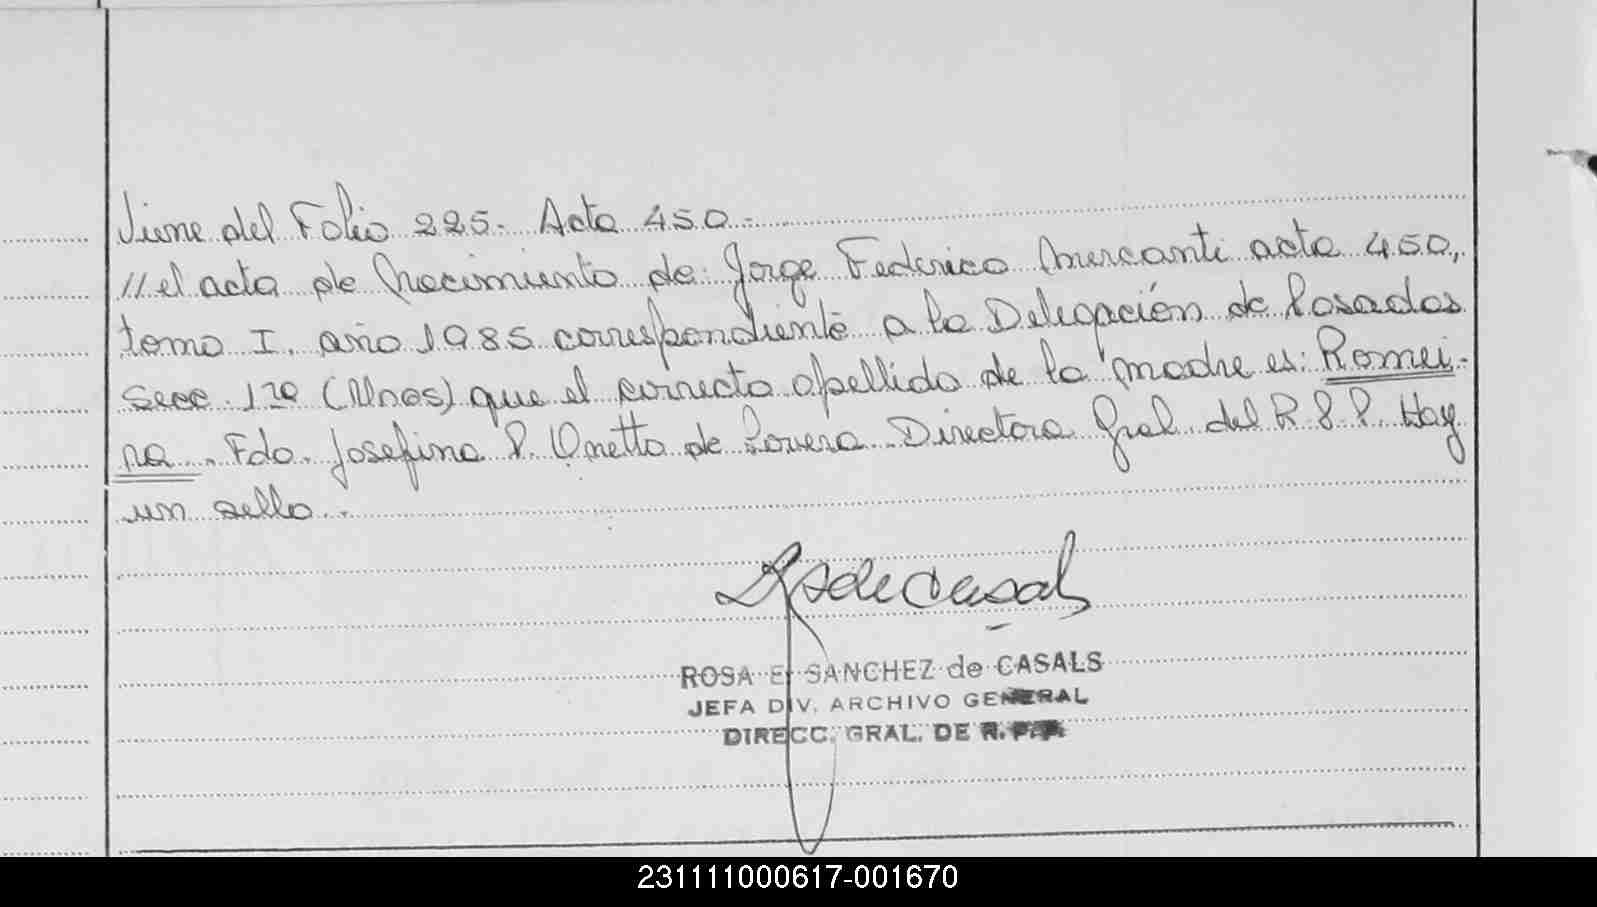 Viene del Folio 225. Acta 450.-
// el acta de Nacimiento de: Jorge Federico Mercanti acta 450,
tomo I. año 1985 correspondiente a la Delegación de Posadas
Secc. 1ra que el correcto apellido de la madre es: Romei-
na. Fdo. Josefina P. Onetto de Lovera Directora Gral. del R.P.P. Hay
un sello.
ROSA E. SANCHEZ de CASALS
JEFA DIV. ARCHIVO GENERAL
DIRECC. GRAL. DE R.P.P.
231111000617-001670